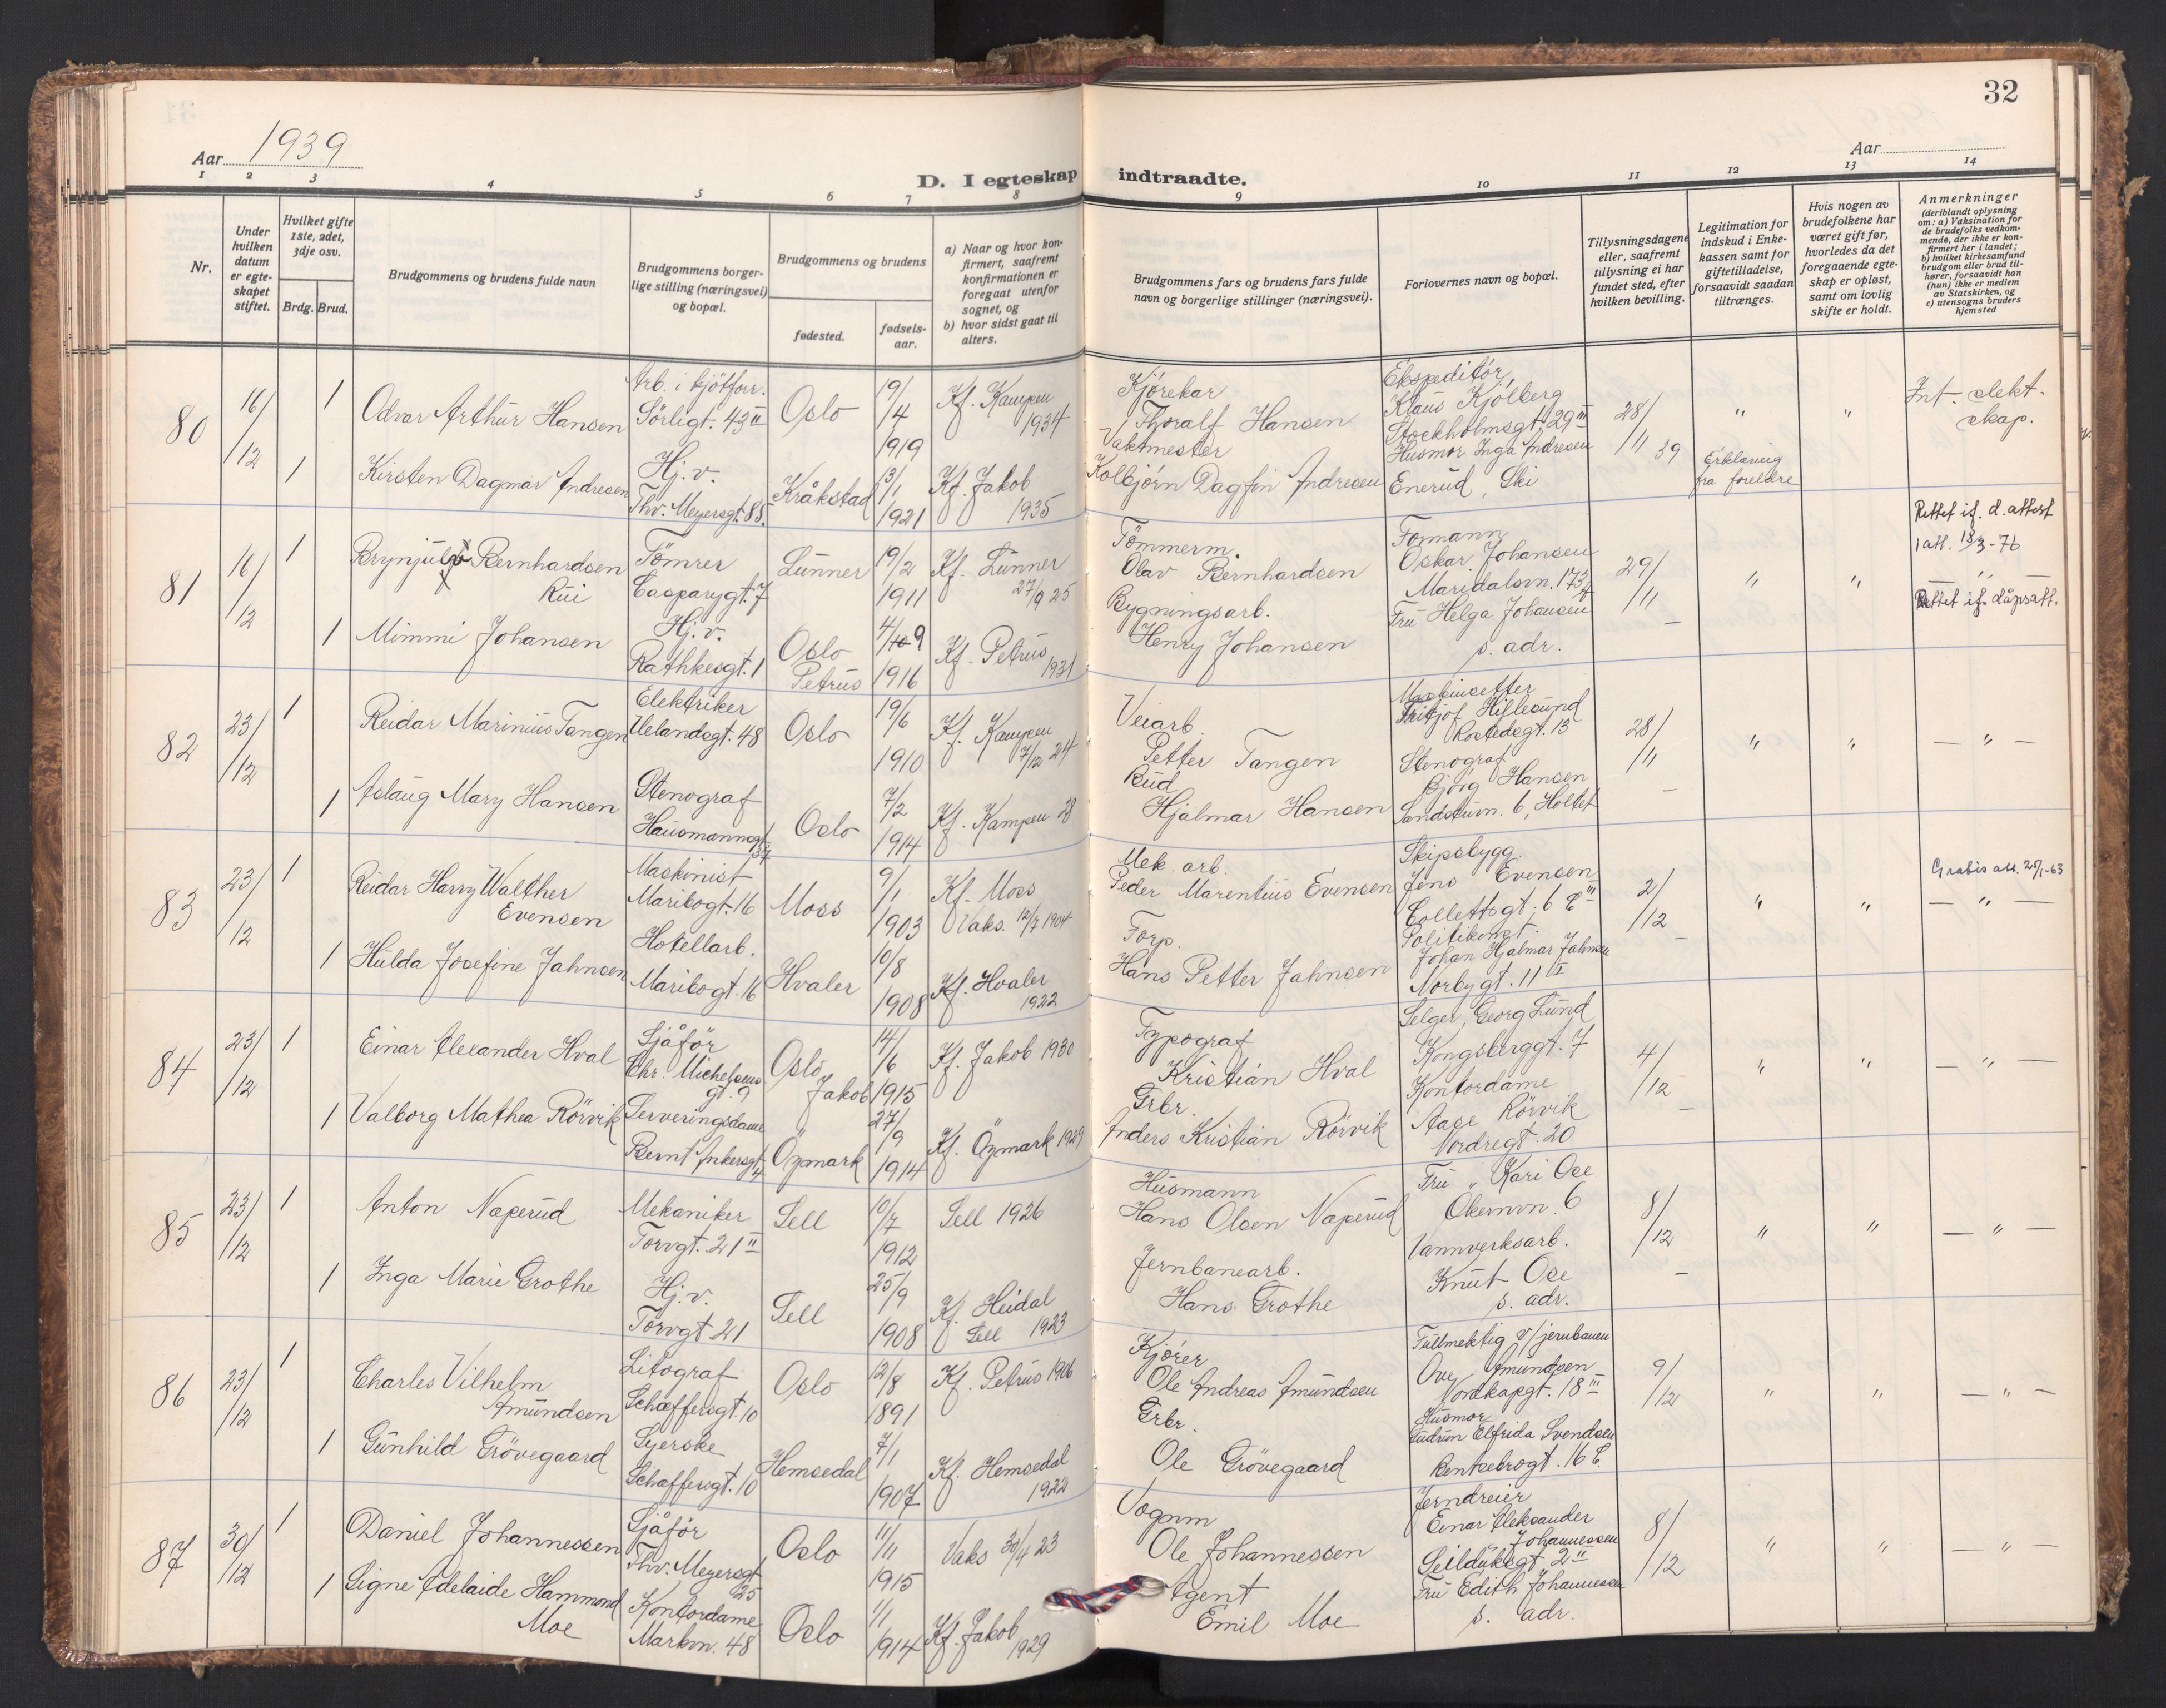 32
Aar 1939
Aar
1 2 3 4 5 6 7 8 9 10 11 12 13 14
D. I egteskap indtraadte.
Nr.
Under hvilken datum er egteskapet stiftet.
Hvilket gifte 1ste, 2det, 3dje osv.
Brdg. Brud.
Brudgommens og brudens fulde navn
Brudgommens borgerlige stilling (næringsvei) og bopæl.
Brudgommens og brudens
fødested.
fødselsaar.
a) Naar og hvor konfirmert, saafremt konfirmationen er foregaat utenfor sognet, og
b) hvor sidst gaat til alters.
Brudgommens fars og brudens fars fulde navn og borgerlige stillinger (næringsvei).
Forlovernes navn og bopæl.
Tillysningsdagene eller, saafremt tillysning ei har fundet sted, efter hvilken bevilling.
Legitimation for indskud i Enkekassen samt for giftetilladelse, forsaavidt saadan tiltrænges.
Hvis nogen av brudefolkene har været gift før, hvorledes da det foregaaende egteskap er opløst, samt om lovlig skifte er holdt.
Anmerkninger
(deriblandt oplysning om: a) Vaksination for de brudefolks vedkommende, der ikke er konfirmert her i landet; b) hvilket kirkesamfund brudgom eller brud tilhører, forsaavidt han (hun) ikke er medlem av Statskirken, og c) utensogns bruders hjemsted
80 16/12 1 Odvar Arthur Hansen
Arb. i kjöttforr.
Sörligt. 43 II
Oslo 19/4 1919 Kf. Kampen 1934
Kjørekar
Thoralf Hansen
Ekspeditör,
Klaus Kjölberg
Stockholmsgt. 29 III
28/11 39 " "
Int. slektskap.
1 Kirsten Dagmar Andresen
Hj. v.
Thv. Meyersgt. 88.
Kråkstad 3/1 1921 Kf. Jakob 1935
Vaktmester
Kolbjörn Dagfin Andresen
Husmor Inga Andresen
Enerud, Ski
Erklæring fra foreldre
81 16/12 1 Brynjulf Bernhardsen Rui
Tömrer
Casparygt. 7
Lunner 19/2 1911 Kf. Lunner 27/9 25
Tömmerm.
Olav Bernhardsen
Formann
Oskar Johansen
Maridalsvn. 173
29/11 – " "
Rettet if. d. attest
1 att. 18/3-76
Rettet if. dåpsatt.
1 Mimmi Johansen
Hj. v.
Rathkesgt. 1
Oslo Petrus 4/9 1916 Kf. Petrus 1931
Bygningsarb.
Henry Johansen
Fru Helga Johansen
s. adr.
82 23/12 1 Reidar Marinius Tangen
Elektriker
Uelandsgt. 48
Oslo 19/6 1910 Kf. Kampen 7/12 24
Veiarb.
Petter Tangen
Maskinsetter
Fritjof Hillesund
Rostedsgt. 13
28/11 – " " — " —
1 Aslaug Mary Hansen
Stenograf
Hausmannsgt. 37
Oslo 7/2 1914 Kf. Kampen 28
Bud
Hjalmar Hansen
Stenograf
Björg Hansen
Sandstuvn. 6, Holtet
83 23/12 1 Reidar Harry Walther Evensen
Maskinist
Maribogt. 16
Moss 9/1 1903 Kf. Moss
Vaks. 12/7 1904
Mek. arb.
Peder Marentius Evensen
Skipsbygg.
Jens Evensen
Collettsgt. 6 E III
2/12 – " " — " —
Gratis att. 25/1-63
1 Hulda Josefine Jahnsen
Hotellarb.
Maribogt. 16
Hvaler 10/8 1908 Kf. Hvaler 1922
Forp.
Hans Petter Jahnsen
Politikonst.
Johan Hjalmar Jahnsen
Norbygt. 11 II
84 23/12 1 Einar Alexander Hval
Sjåför
Chr. Michelsens gt. 9
Oslo, Jakob 14/6 1915 Kf. Jakob 1930
Typograf
Kristian Hval
Selger, Georg Lund
Kongsberggt. 7
4/12 – " " — " —
1 Valborg Mathea Rörvik
Serveringsdame
Bernt Ankersgt. 4
Öymark 27/9 1914 Kf. Öymark 1929
Grbr.
Anders Kristian Rörvik
Kontordame
Aase Rörvik
Nordregt. 20
85 23/12 1 Anton Naperud
Mekaniker
Torvgt. 21 II
Sell 10/7 1912 Sell 1926
Husmann
Hans Olsen Naperud
Fru Kari Ose
Økernvn. 6
8/12 – " " — " —
1 Inga Marie Grothe
Hj. v.
Torvgt 21
Sell 25/9 1908 Kf. Heidal Sell 1923
Jernbanearb.
Hans Grothe
Vannverksarb.
Knut Ose
s. adr.
86 23/12 1 Charles Vilhelm Amundsen
Litograf
Schæffersgt. 10
Oslo 12/8 1891 Kf. Petrus 1906
Kjører
Ole Andreas Amundsen
Fullmektig v/jernbanen
Ove Amundsen
Nordkapgt. 18 III
9/12 " " — " —
1 Gunhild Grövegaard
Syerske
Schæffersgt. 10
Hemsedal 7/1 1907 Kf. Hemsedal 1922
Grbr.
Ole Grövegaard
Husmor
Gudrun Elfrida Svendsen
Bentsebrogt. 16 E.
87 30/12 1 Daniel Johannessen
Sjåfør
Thv. Meyersgt. 25
Oslo 11/11 1915 Vaks 30/4 23
Vognm
Ole Johannessen
Jerndreier
Einar Aleksander Johannessen
Seilduksgt 2 II
8/12 " " — " —
1 Signe Adelaide Hammond Moe
Kontordame
Markvn. 48
Oslo 1/1 1914 Kf. Jakob 1929
Agent
Emil Moe
Fru Edith Johannessen
s. adr.